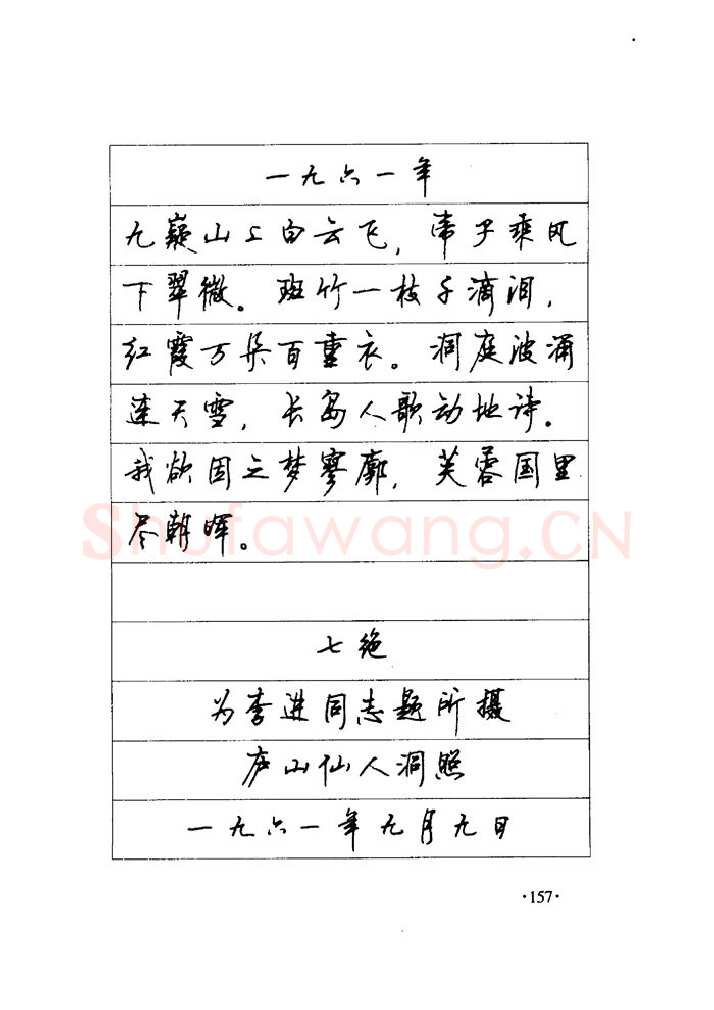 一九六一年
九嶷山上白云飞，帝子乘风
下翠微。斑竹一枝千滴泪，
红霞万朵百重衣。洞庭波涌
连天雪，长岛人歌动地诗。
我欲因之梦寥廓，芙蓉国里
尽朝晖。
Shufawang.CN
七绝
为李进同志题所摄
庐山仙人洞照
一九六一年九月九日
·157·